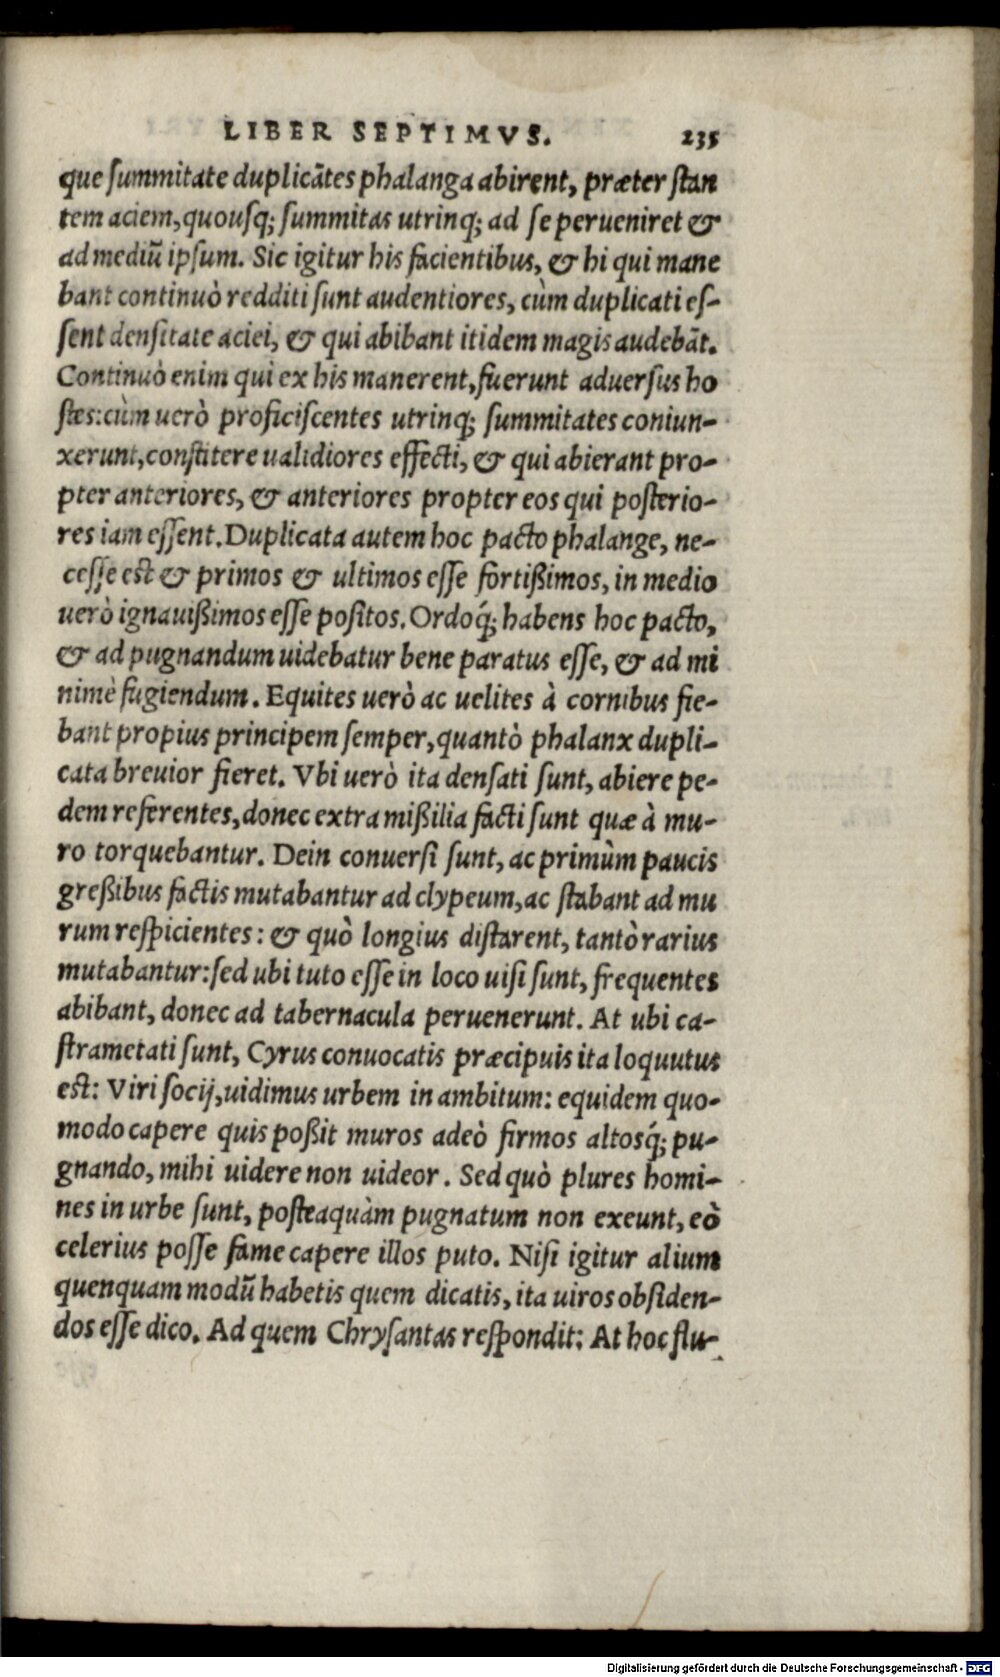 LIBER SEPTIMVS. 235
que ſummitate duplicātes phalanga abirent, præter ſtan
tem aciem, quouſq; ſummitas utrinq; ad ſe perueniret &
ad mediū ipſum. Sic igitur his facientibus, & hi qui mane
bant continuò redditi ſunt audentiores, cùm duplicati eſ-
ſent denſitate aciei, & qui abibant itidem magis audebāt.
Continuò enim qui ex his manerent, fuerunt aduerſus ho
ſtes: cùm uerò proficiſcentes utrinq; ſummitates coniun-
xerunt, conſtitere ualidiores effecti, & qui abierant pro-
pter anteriores, & anteriores propter eos qui poſterio-
res iam eſſent. Duplicata autem hoc pacto phalange, ne-
ceſſe eſt & primos & ultimos eſſe fortißimos, in medio
uerò ignauißimos eſſe poſitos. Ordoq́; habens hoc pacto,
& ad pugnandum uidebatur bene paratus eſſe, & ad mi
nimè fugiendum. Equites uerò ac uelites à cornibus fie-
bant propius principem ſemper, quantò phalanx dupli-
cata breuior fieret. Vbi uerò ita denſati ſunt, abiere pe-
dem referentes, donec extra mißilia facti ſunt quæ à mu-
ro torquebantur. Dein conuerſi ſunt, ac primùm paucis
greßibus factis mutabantur ad clypeum, ac ſtabant ad mu
rum reſpicientes: & quò longius diſtarent, tantò rarius
mutabantur: ſed ubi tuto eſſe in loco uiſi ſunt, frequentes
abibant, donec ad tabernacula peruenerunt. At ubi ca-
ſtrametati ſunt, Cyrus conuocatis præcipuis ita loquutus
eſt: Viri ſocij, uidimus urbem in ambitum: equidem quo-
modo capere quis poßit muros adeò firmos altosq́; pu-
gnando, mihi uidere non uideor. Sed quò plures homi-
nes in urbe ſunt, poſteaquàm pugnatum non exeunt, eò
celerius poſſe fame capere illos puto. Niſi igitur alium
quenquam modū habetis quem dicatis, ita uiros obſiden-
dos eſſe dico. Ad quem Chryſantas reſpondit: At hoc flu-
Digitalisierung gefördert durch die Deutsche Forschungsgemeinschaft - DFG